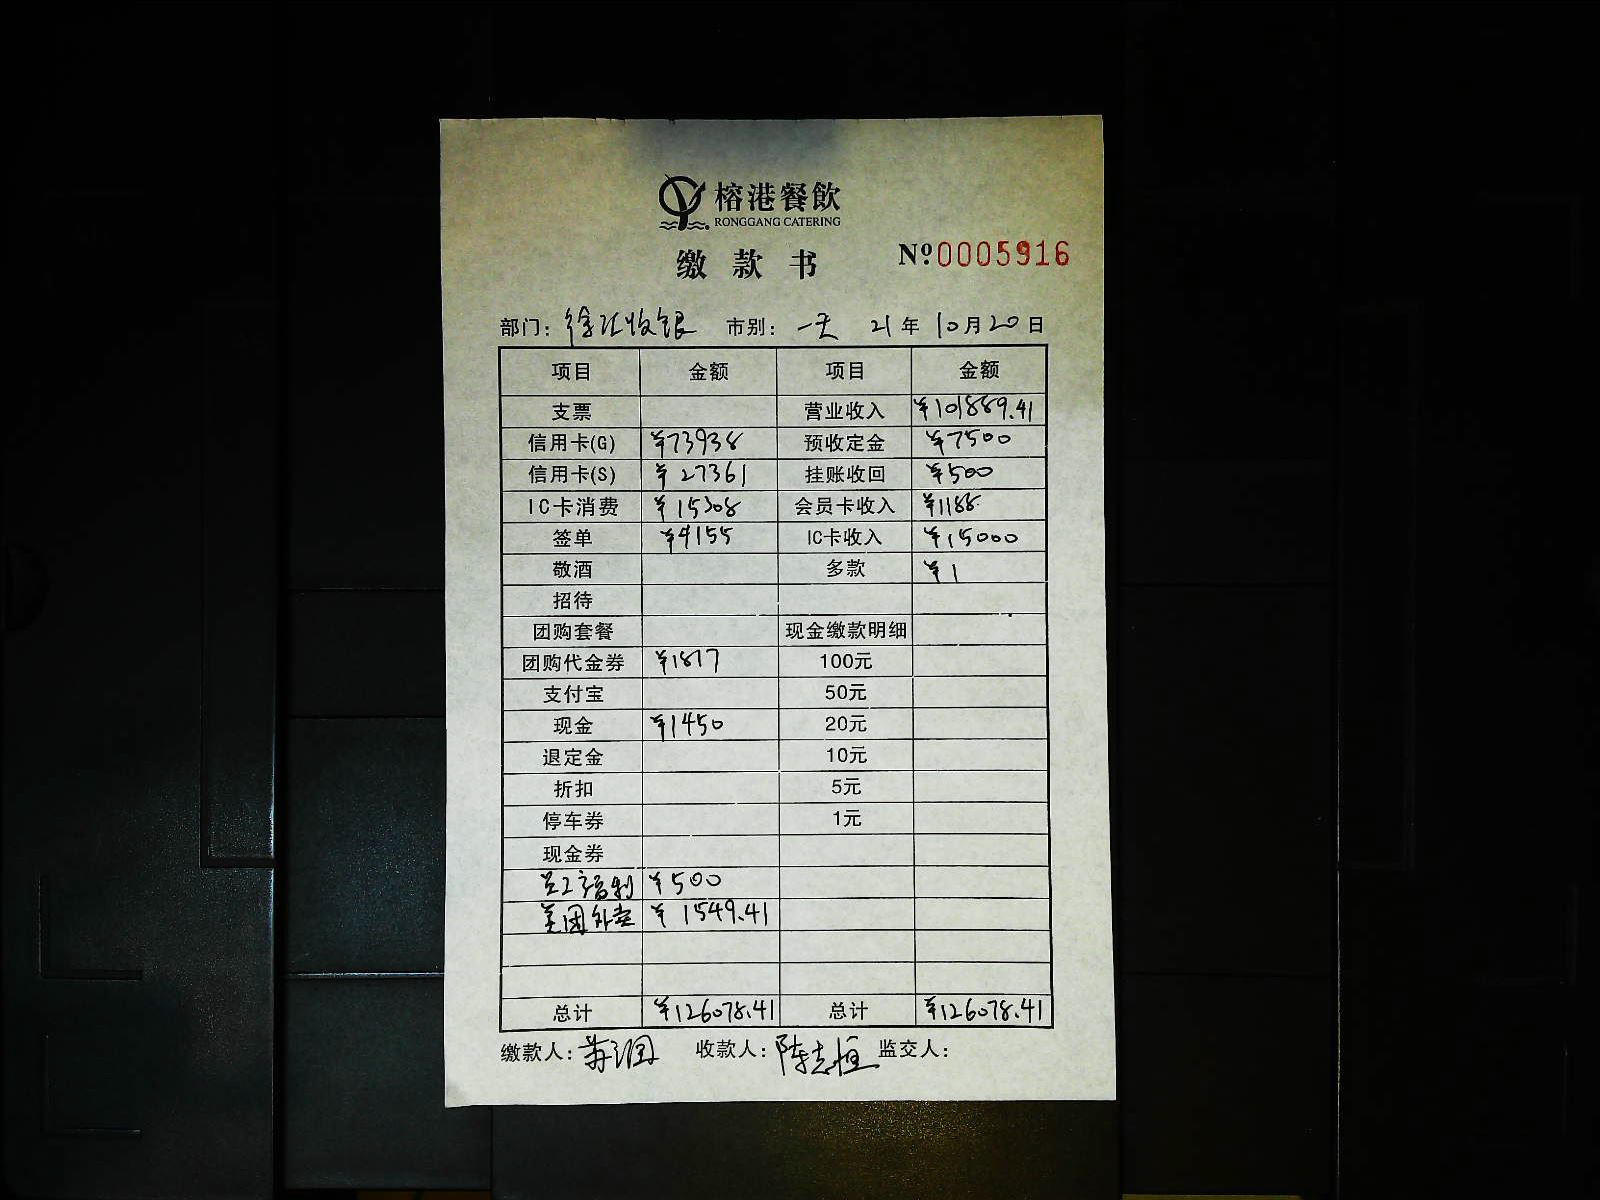 榕港餐飲
RONGGANG CATERING
缴款书 Nº0005916
部门: 徐汇收银 市别: 一天 21年10月20日
项目 金额 项目 金额
支票 营业收入 ¥101889.41
信用卡(G) ¥73938 预收定金 ¥7500
信用卡(S) ¥27361 挂账收回 ¥500
IC卡消费 ¥15308 会员卡收入 ¥1188
签单 ¥4155 IC卡收入 ¥15000
敬酒 多款 ¥1
招待
团购套餐 现金缴款明细
团购代金券 ¥1817 100元
支付宝 50元
现金 ¥1450 20元
退定金 10元
折扣 5元
停车券 1元
现金券
员工福利 ¥500
美团外卖 ¥1549.41
总计 ¥126078.41 总计 ¥126078.41
缴款人: 收款人: 陈志恒 监交人: